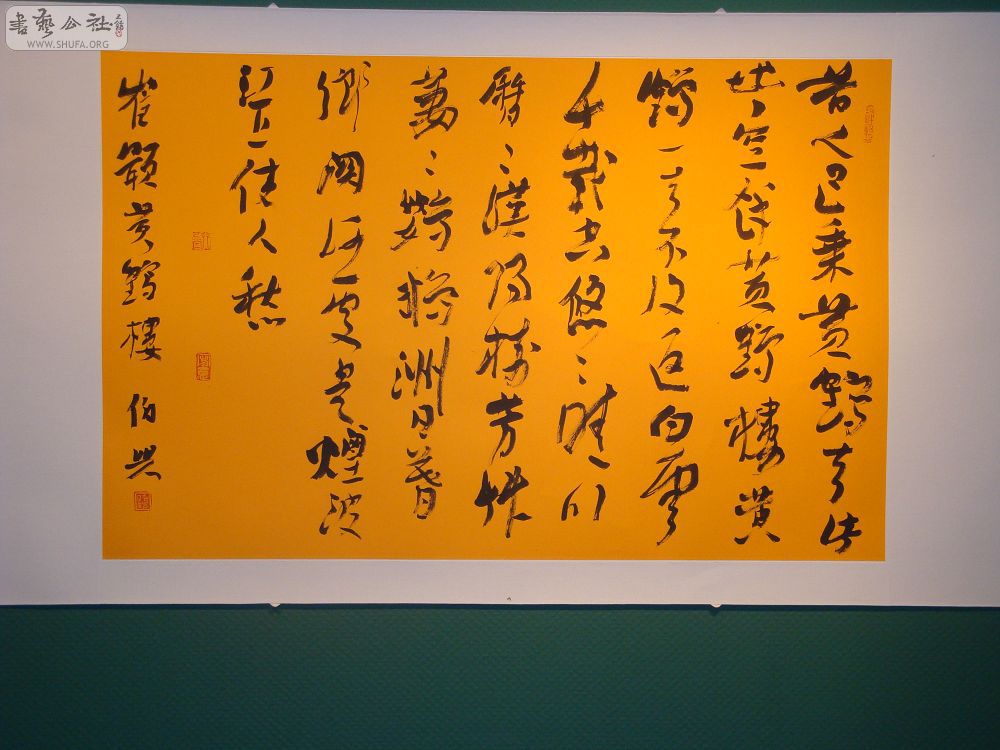 書藝公社
WWW.SHUFA.ORG
昔人已乘黄鶴去此
地空餘黄鶴樓黄
鶴一去不復返白雲
千載空悠々晴川
歷々漢陽樹芳草
萋々鸚鵡洲日暮
鄉關何處是煙波
江上使人愁
崔顥黄鶴樓 伯